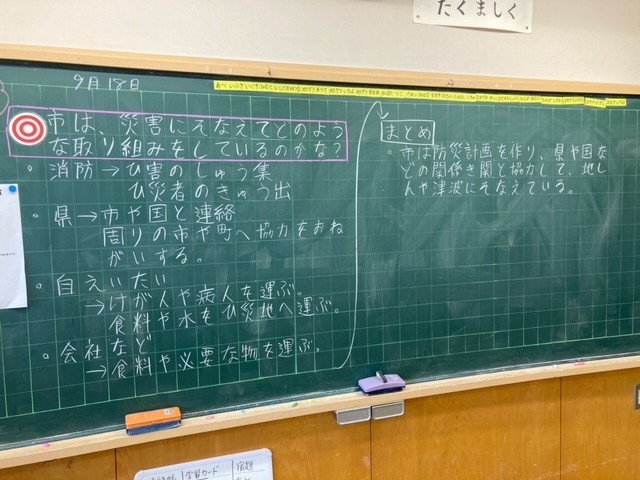 たくましく
9月18日
市は、災害にそなえてどのよう
な取り組みをしているのかな?
・消防→ひ害のしゅう集
ひ災者のきゅう出
・県→市や国と連絡
周りの市や町へ協力をおね
がいする。
・自えいたい
→けが人や病人を運ぶ。
食料や水をひ災地へ運ぶ。
・会社など
→食料や必要な物を運ぶ。
まとめ
・市は防災計画を作り、県や国な
どの関係き関と協力して、地し
んや津波にそなえている。
学習カード
宿題